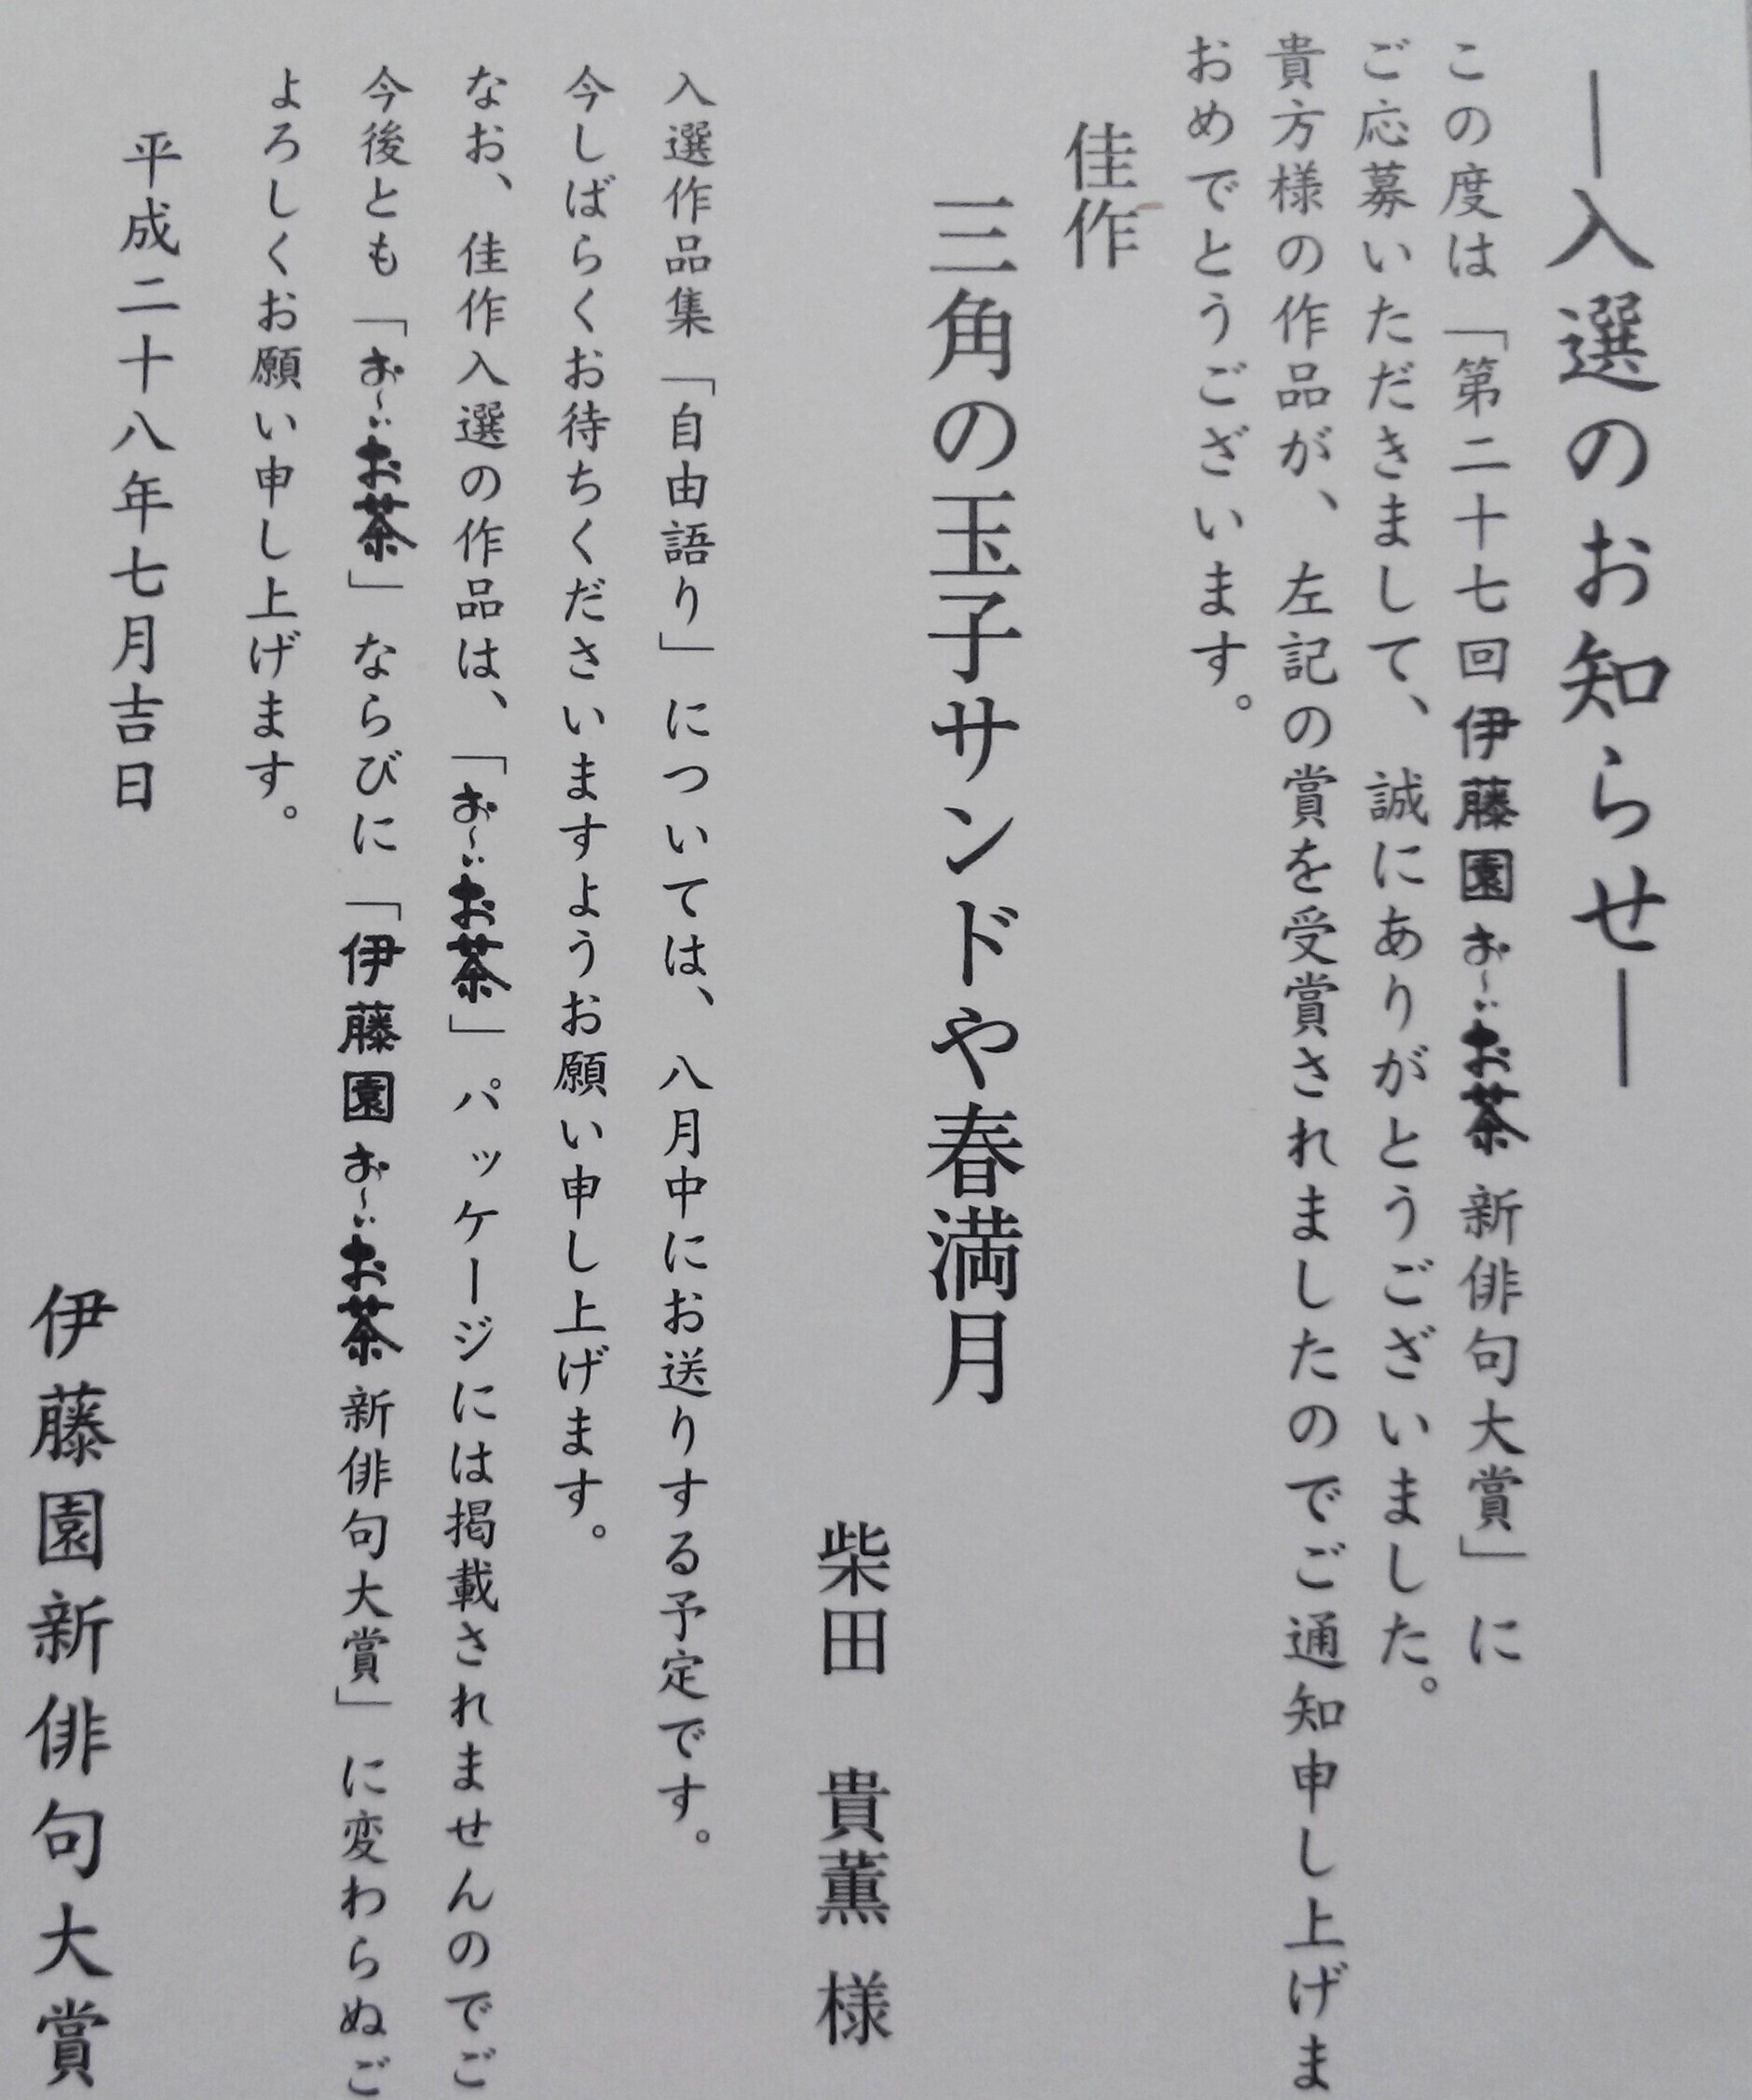 ―入選のお知らせ―
この度は「第二十七回伊藤園お～いお茶新俳句大賞」に
ご応募いただきまして、誠にありがとうございました。
貴方様の作品が、左記の賞を受賞されましたのでご通知申し上げま
おめでとうございます。
佳作
三角の玉子サンドや春満月
柴田 貴薫 様
入選作品集「自由語り」については、八月中にお送りする予定です。
今しばらくお待ちくださいますようお願い申し上げます。
なお、佳作入選の作品は、「お～いお茶」パッケージには掲載されませんのでご
今後とも「お～いお茶」ならびに「伊藤園お～いお茶新俳句大賞」に変わらぬご
よろしくお願い申し上げます。
平成二十八年七月吉日
伊藤園新俳句大賞